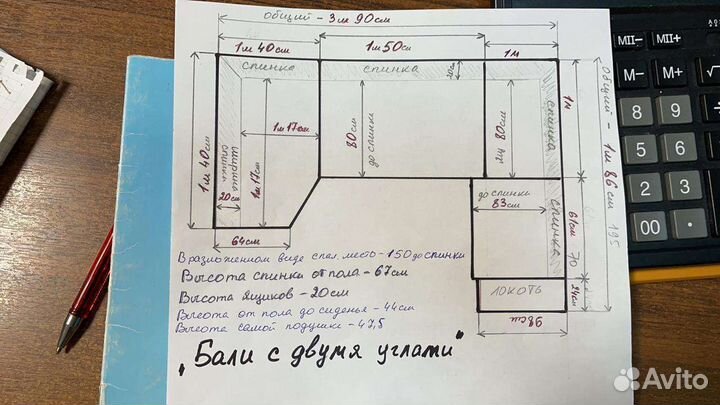 общий - 3м 90см
1м 40см
1м 50см
1м
спинка
спинка
20см
1м 40см
ширина спинки
20см
1м 17см
1м 17см
80см
до спинки
80см
1м
спинка
общий - 1м 86см 195
до спинки
83см
спинка
61см
70
64см
локоть
24см
98см
В разложенном виде спал. место - 150 до спинки
Высота спинки от пола - 67см
Высота ящиков - 20см
Высота от пола до сиденья - 44см
Высота самой подушке - 47,5
"Бали с двумя углами"
MII-
MII=
M-
M+
√
8
9
5
6
2
3
00
.
Avito